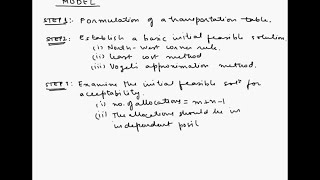 MODEL
STEP 1:- Formulation of a transportation table.
STEP2:- Establish a basic initial feasible solution
(i) North-West corner rule.
(ii) Least cost method
(iii) Vogel's approximation method.
STEP 3:- Examine the initial feasible solⁿ for
acceptability.
(i) no. of allocations = m+n-1
(ii) The allocations should be in
independent posit